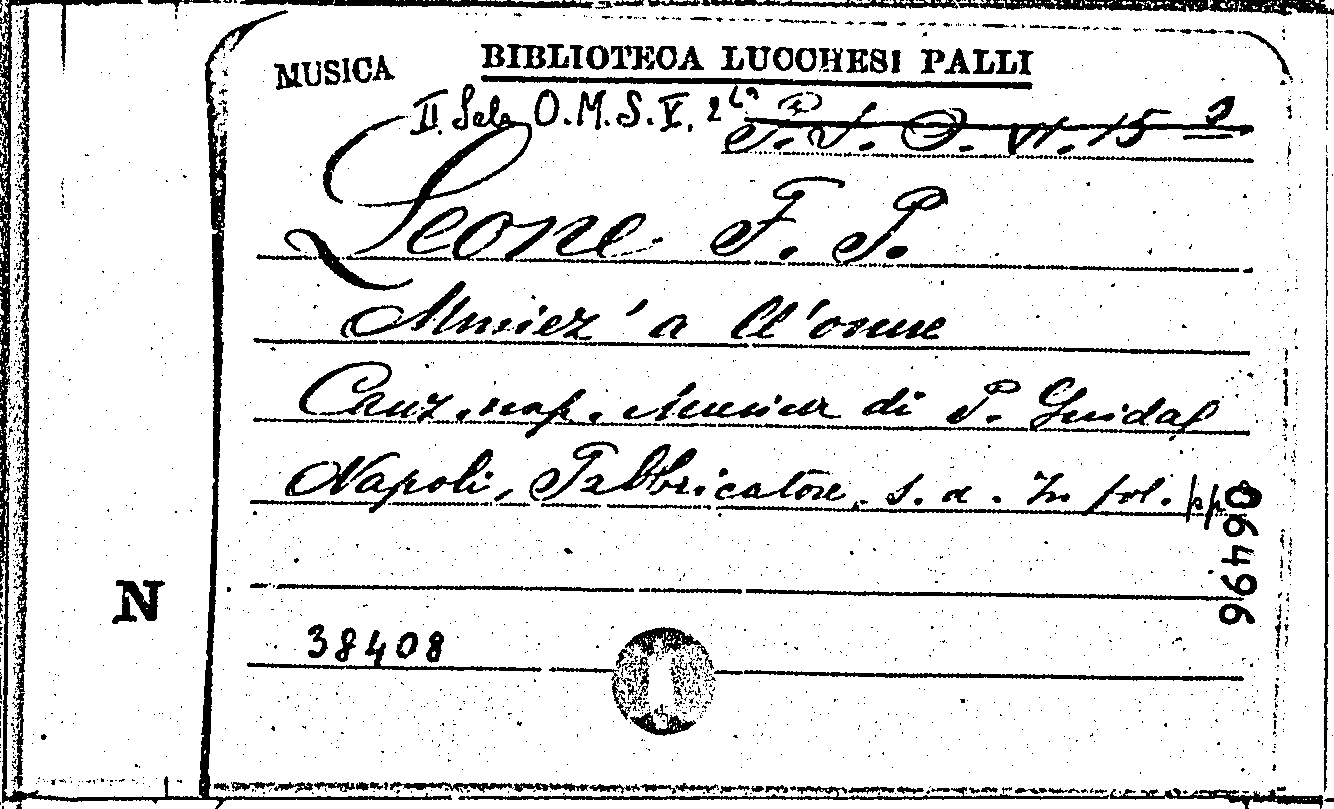 MUSICA BIBLIOTECA LUCCHESI PALLI
II Sala O.M.S.V. 2
VI. 15
Leone F. P.
Mmiez' a ll'onne
Canz. nap. Musica di P. Guida
Napoli, Fabbricatore, s. a. In fol. pp
06496
N
38408